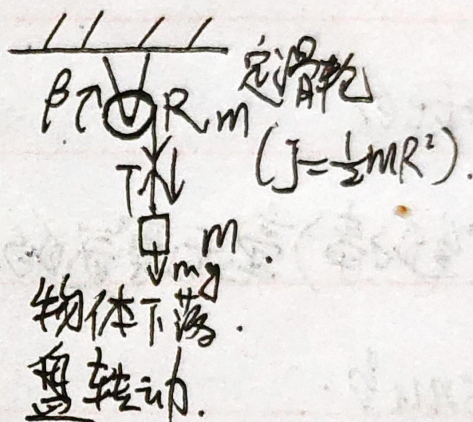 定滑轮
β R m
(J=½mR²).
T
m
mg
物体下落.
盘转动.